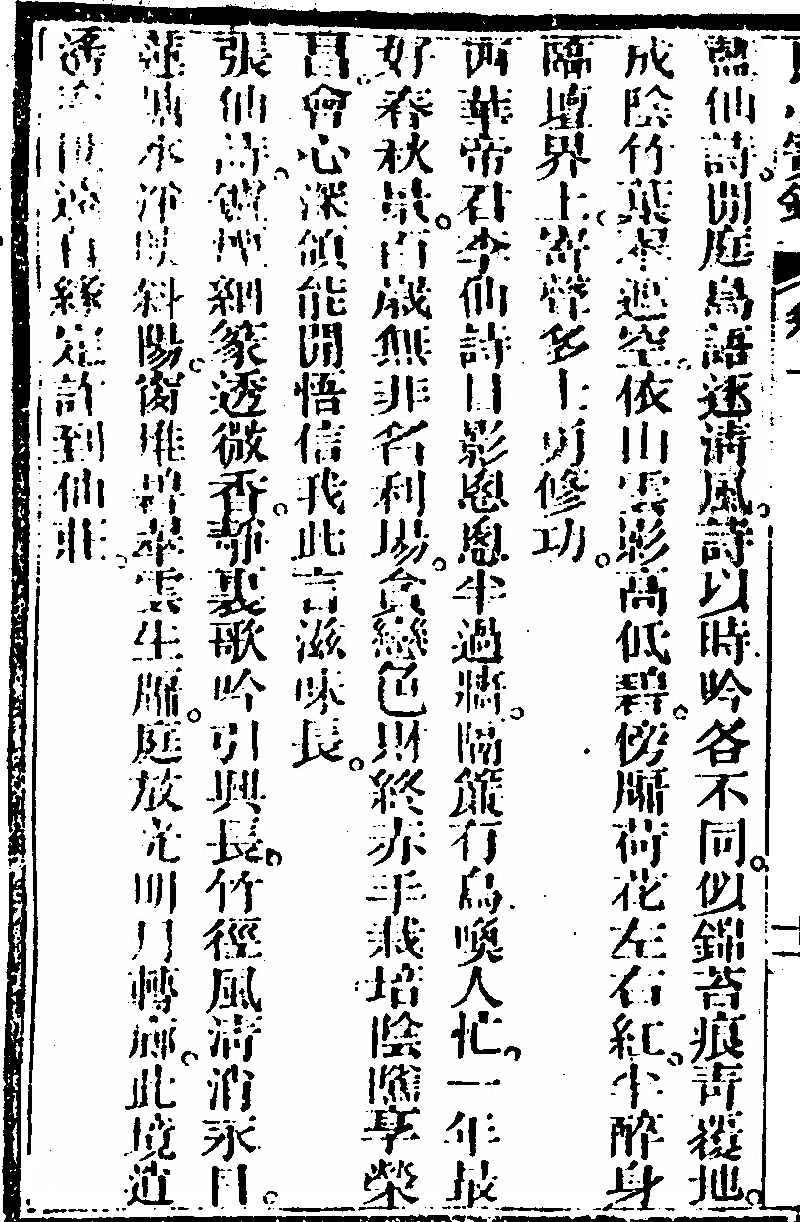 藍仙詩閒庭鳥語逐清風詩以時吟各不同似錦苔痕靑襯地
成陰竹葉翠遮空依山雲影高低碧傍牖荷花左右紅半醉身
臨壇界上寄聲多士勇修功
西華帝君李仙詩日影恩恩半過牆隔簾行鳥喚人忙一年最
好春秋景百歲無非名利場貪戀色財終赤手栽培陰隲享榮
昌會心深領能開悟信我此言滋味長
張仙詩爐煙細篆透微香靜裏歌吟引興長竹徑風清消永日
蓮塘水淨映斜陽窗堆碧翠雲生牖庭放光明月轉廊此境逍
遙 世 有緣定許到仙莊